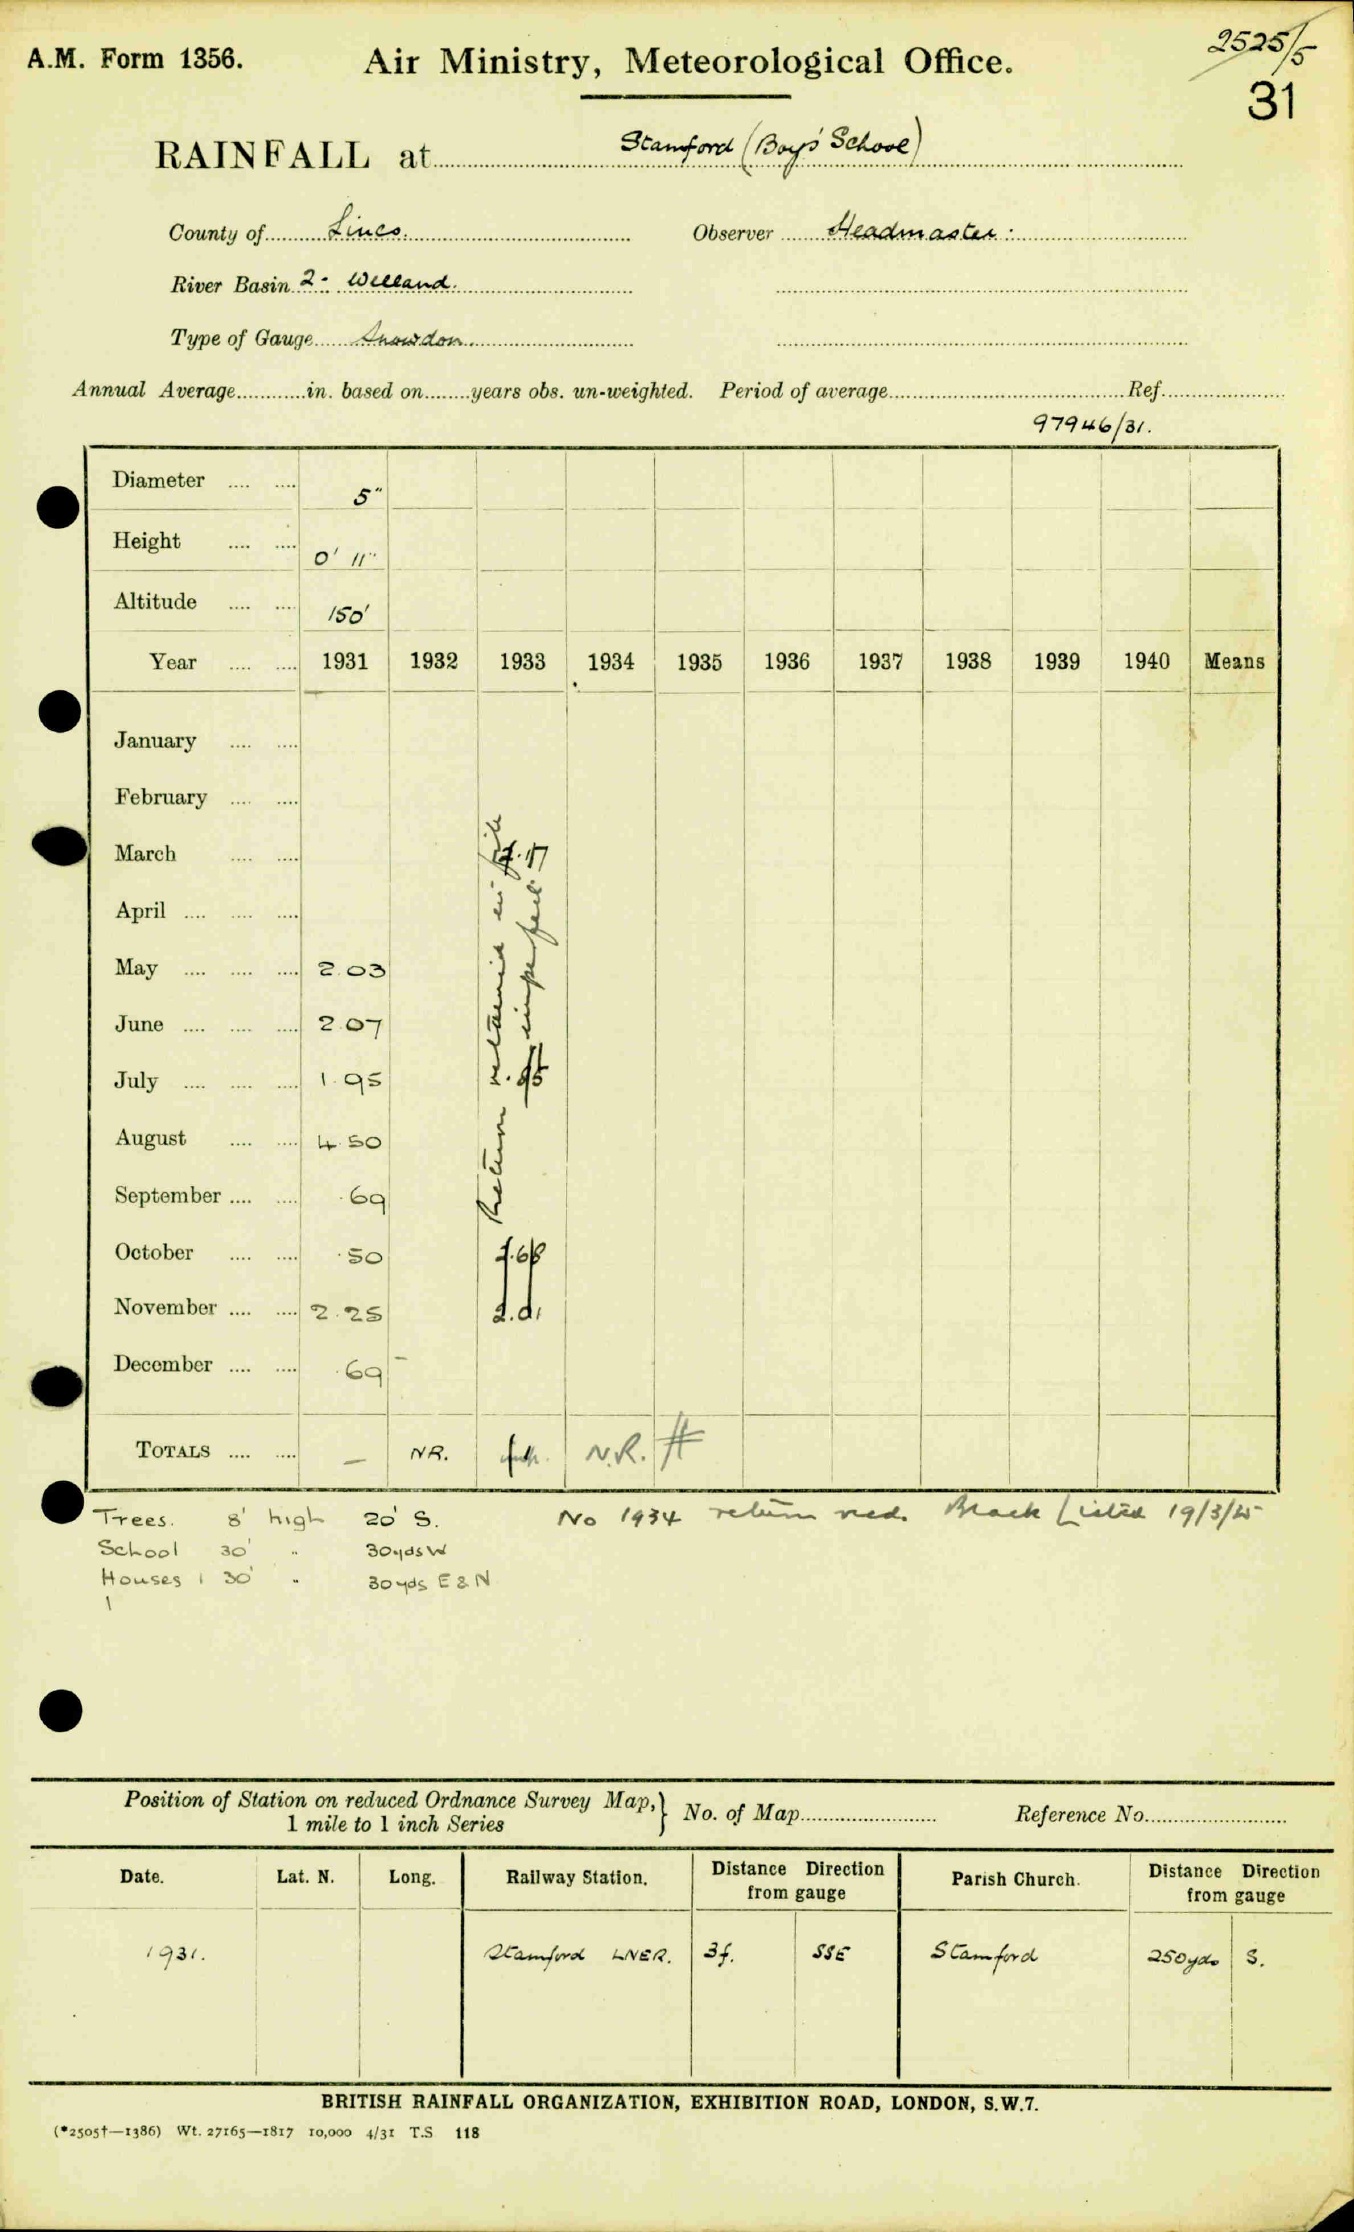 2525/5
A.M. Form 1356. Air Ministry, Meteorological Office.
31
RAINFALL at Stamford (Boys' School)
County of Lincs. Observer Headmaster:
River Basin 2- Welland.
Type of Gauge Snowdon.
Annual Average in. based on years obs. un-weighted. Period of average Ref.
97946/31.
Diameter 5"
Height 0' 11"
Altitude 150'
Year 1931 1932 1933 1934 1935 1936 1937 1938 1939 1940 Means
January
February
March
April
May 2.03
June 2.07
July 1.95
August 4.50
September .69
October .50 2.68
November 2.25 2.01
December .69
Return retained in file
imperfect
TOTALS — NR. N.R. #
Trees. 8' high 20' S. No 1934 return recd. Black Listed
School 30' " 30yds W
Houses 30' " 30yds E & N
Position of Station on reduced Ordnance Survey Map, } No. of Map Reference No.
1 mile to 1 inch Series
Date. Lat. N. Long. Railway Station. Distance Direction from gauge Parish Church. Distance Direction from gauge
1931. Stamford LNER. 3f. SSE Stamford 250yds S.
BRITISH RAINFALL ORGANIZATION, EXHIBITION ROAD, LONDON, S.W.7.
(*2505†—1386) Wt. 27165—1817 10,000 4/31 T.S 118